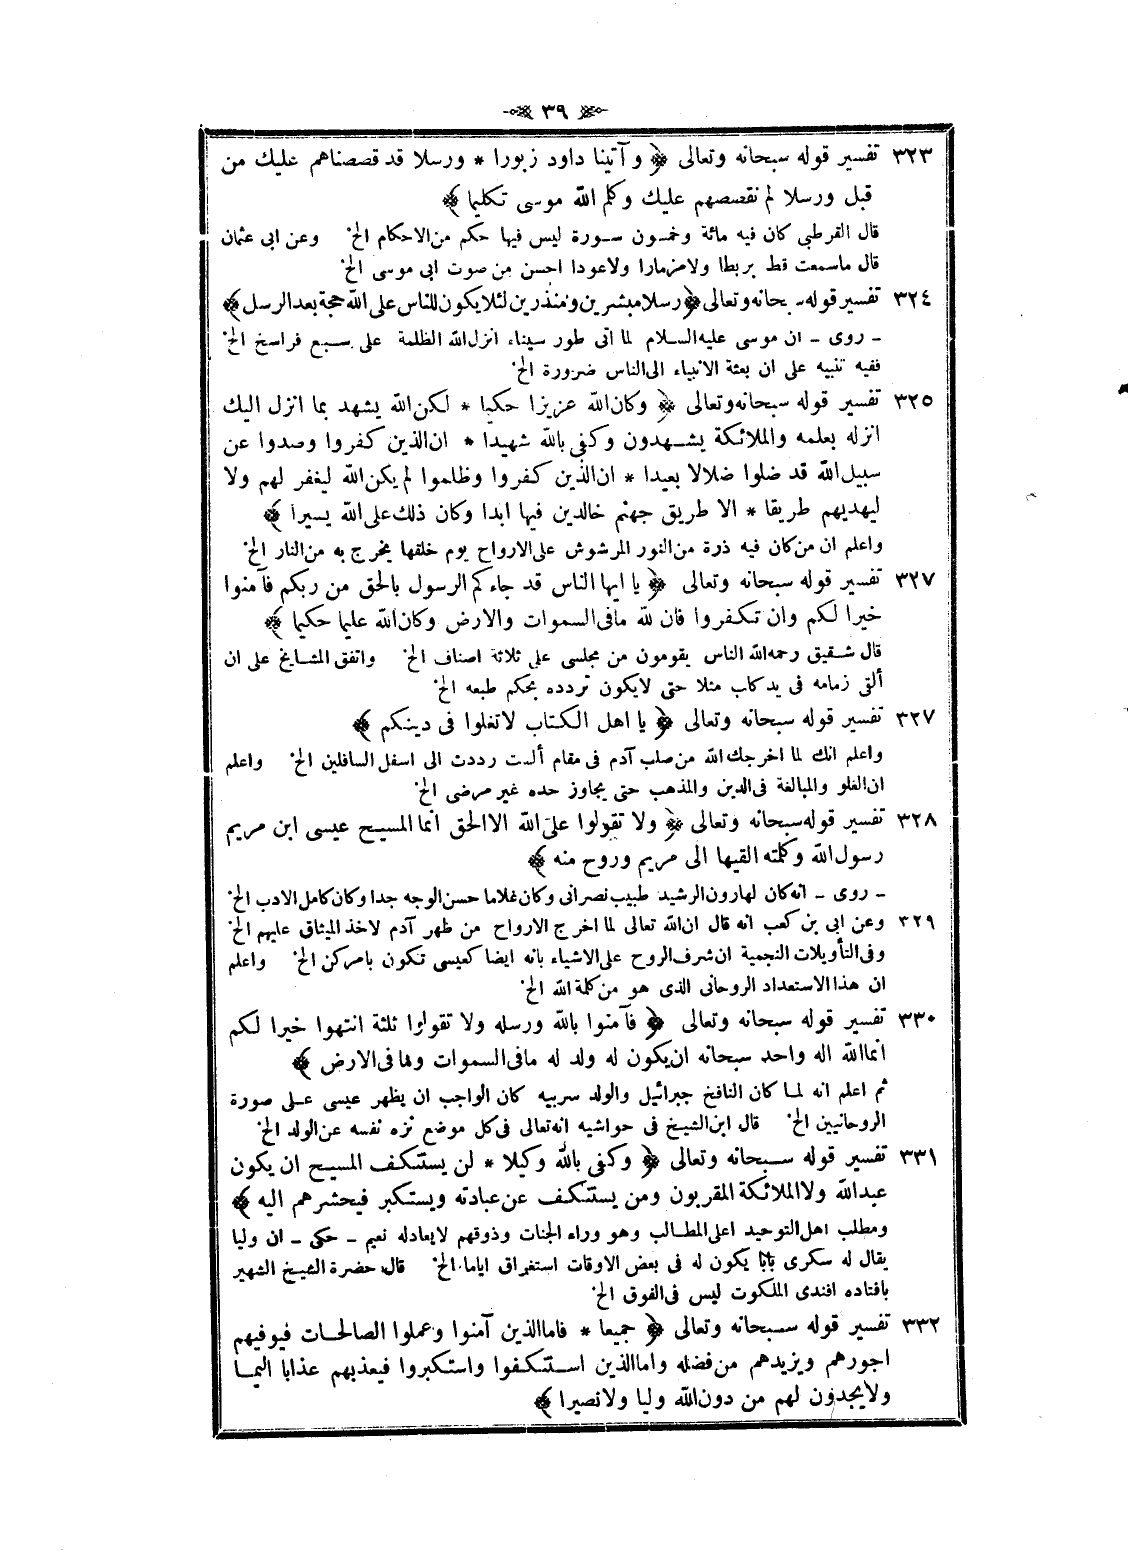 ٣٩
٣٢٣ تفسير قوله سبحانه وتعالى ﴿ وآتينا داود زبورا * ورسلا قد قصصناهم عليك من
قبل ورسلا لم نقصصهم عليك وكلم الله موسى تكليما ﴾
قال القرطبى كان فيه مائة وخمسون سورة ليس فيها حكم من الاحكام الخ وعن ابى عثمان
قال ماسمعت قط بربطا ولامزمارا ولاعودا احسن من صوت ابى موسى الخ
٣٢٤ تفسير قوله سبحانه وتعالى ﴿ رسلا مبشرين ومنذرين لئلا يكون للناس على الله حجة بعد الرسل ﴾
ـ روى ـ ان موسى عليه السلام لما اتى طور سيناء انزل الله الظلمة على سبع فراسخ الخ
ففيه تنبيه على ان بعثة الانبياء الى الناس ضرورة الخ
٣٢٥ تفسير قوله سبحانه وتعالى ﴿ وكان الله عزيزا حكيما * لكن الله يشهد بما انزل اليك
انزله بعلمه والملائكة يشهدون وكفى بالله شهيدا * ان الذين كفروا وصدوا عن
سبيل الله قد ضلوا ضلالا بعيدا * ان الذين كفروا وظلموا لم يكن الله ليغفر لهم ولا
ليهديهم طريقا * الا طريق جهنم خالدين فيها ابدا وكان ذلك على الله يسيرا ﴾
واعلم ان من كان فيه ذرة من النور المرشوش على الارواح يوم خلقها يخرج به من النار الخ
٣٢٧ تفسير قوله سبحانه وتعالى ﴿ يا ايها الناس قد جاءكم الرسول بالحق من ربكم فآمنوا
خيرا لكم وان تكفروا فان لله مافى السموات والارض وكان الله عليما حكيما ﴾
قال شقيق رحمه الله الناس يقومون من مجلسى على ثلاثة اصناف الخ واتفق المشايخ على ان
ألقى زمامه فى يد كاب مثلا حتى لايكون تردده بحكم طبعه الخ
٣٢٧ تفسير قوله سبحانه وتعالى ﴿ يا اهل الكتاب لاتغلوا فى دينكم ﴾
واعلم انك لما اخرجك الله من صلب آدم فى مقام ألست رددت الى اسفل السافلين الخ واعلم
ان الغلو والمبالغة فى الدين والمذهب حتى يجاوز حده غير مرضى الخ
٣٢٨ تفسير قوله سبحانه وتعالى ﴿ ولا تقولوا على الله الا الحق انما المسيح عيسى ابن مريم
رسول الله وكلمته القيها الى مريم وروح منه ﴾
ـ روى ـ انه كان لهارون الرشيد طبيب نصرانى وكان غلاما حسن الوجه جدا وكان كامل الادب الخ
٣٢٩ وعن ابى بن كعب انه قال ان الله تعالى لما اخرج الارواح من ظهر آدم لاخذ الميثاق عليهم الخ
وفى التأويلات النجمية ان شرف الروح على الاشياء بانه ايضا كعيسى تكون بامركن الخ واعلم
ان هذا الاستعداد الروحانى الذى هو من كلمة الله الخ
٣٣٠ تفسير قوله سبحانه وتعالى ﴿ فآمنوا بالله ورسله ولا تقولوا ثلثة انتهوا خيرا لكم
انما الله اله واحد سبحانه ان يكون له ولد له مافى السموات ومافى الارض ﴾
ثم اعلم انه لما كان النافخ جبرائيل والولد سر ابيه كان الواجب ان يظهر عيسى على صورة
الروحانيين الخ قال ابن الشيخ فى حواشيه انه تعالى فى كل موضع نزه نفسه عن الولد الخ
٣٣١ تفسير قوله سبحانه وتعالى ﴿ وكفى بالله وكيلا * لن يستنكف المسيح ان يكون
عبد الله ولا الملائكة المقربون ومن يستنكف عن عبادته ويستكبر فيحشرهم اليه ﴾
ومطلب اهل التوحيد اعلى المطالب وهو وراء الجنات وذوقهم لايعادله نعيم ـ حكى ـ ان وليا
يقال له سكرى بابا يكون له فى بعض الاوقات استغراق اياما الخ قال حضرة الشيخ الشهير
بافتاده افندى الملكوت ليس فى الفوق الخ
٣٣٢ تفسير قوله سبحانه وتعالى ﴿ جميعا * فاما الذين آمنوا وعملوا الصالحات فيوفيهم
اجورهم ويزيدهم من فضله واما الذين استنكفوا واستكبروا فيعذبهم عذابا اليما
ولا يجدون لهم من دون الله وليا ولا نصيرا ﴾